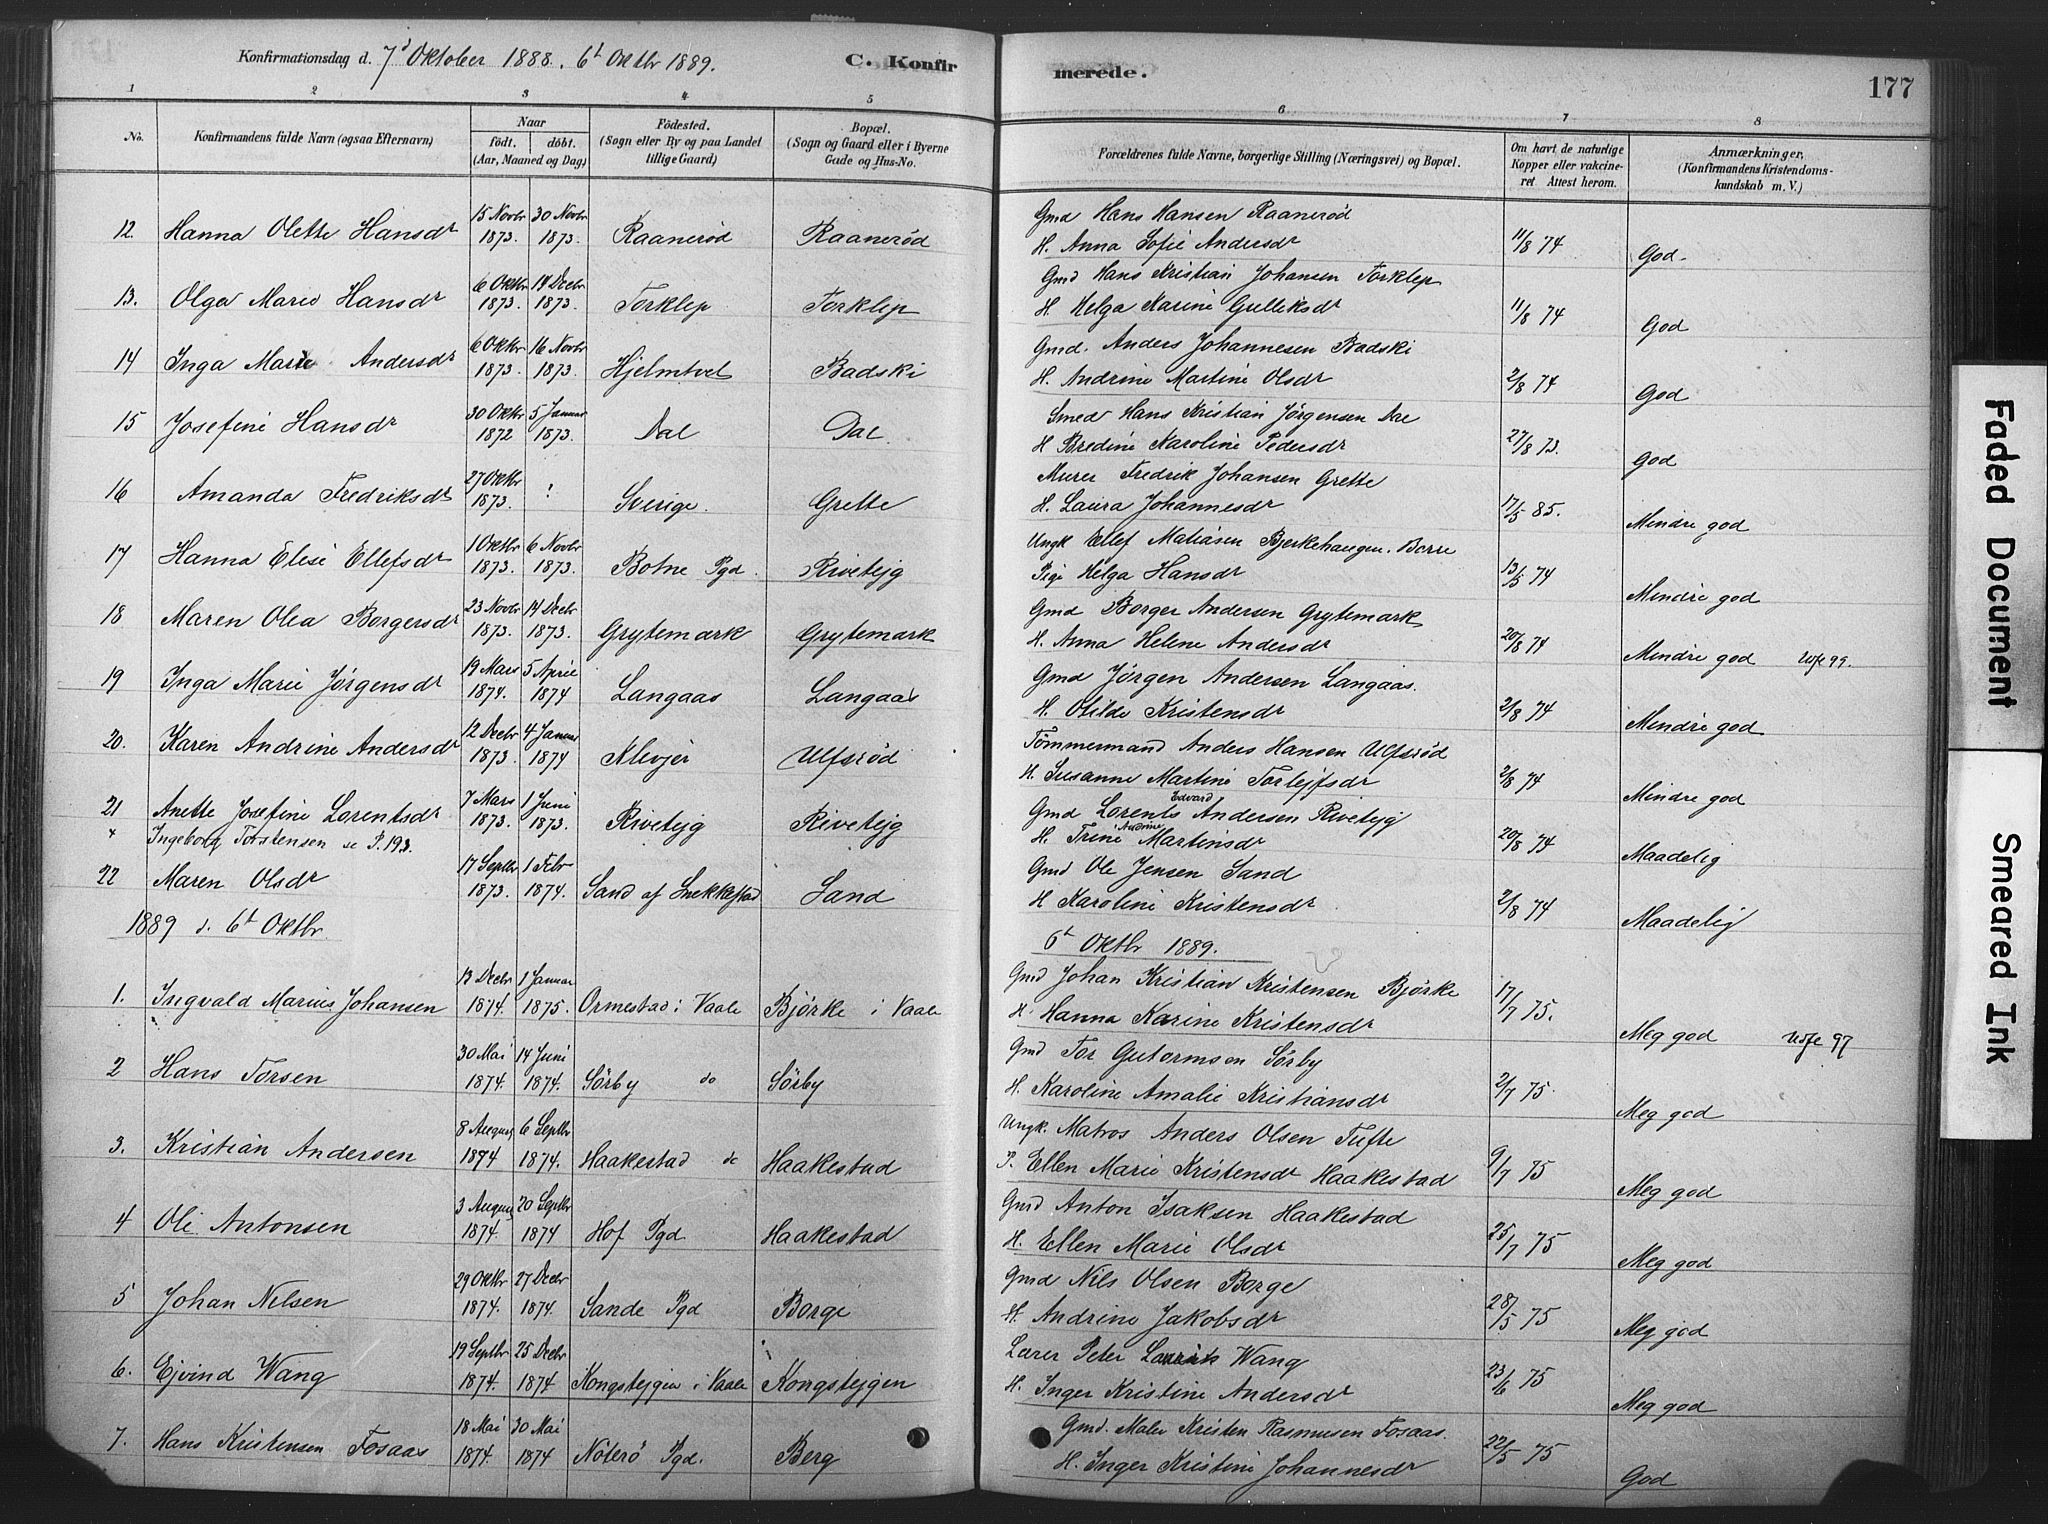 Konfirmationsdag d. 7d Oktober 1888. 6t Oktbr 1889.
C. Konfirmerede.
177
1 2 3 4 5 6 7 8
No.
Konfirmandens fulde Navn (ogsaa Efternavn)
Naar
födt. döbt.
(Aar, Maaned og Dag)
Födested.
(Sogn eller By og paa Landet tillige Gaard)
Bopæl.
(Sogn og Gaard eller i Byerne Gade og Hus-No.
Forældrenes fulde Navne, borgerlige Stilling (Næringsvei) og Bopæl.
Om havt de naturlige Kopper eller vakcineret Attest herom.
Anmærkninger.
(Konfirmandens Kristendomskundskab m. V.)
12. Hanna Olette Hansdr 15 Novbr 1873. 30 Novbr 1873. Raanerød Raanerød Gmd Hans Hansen Raanerød
H. Anna Sofie Andersdr 11/8 74 God
13. Olga Marie Hansdr 6 Oktbr 1873. 14 Decbr 1873. Torklep Torklep Gmd Hans Kristian Johansen Torklep
H. Helga Karine Gulliksdr 11/8 74 God
14 Inga Marie Andersdr 6 Oktbr 1873. 16 Novbr 1873. Hjelmtvet Badski Gmd. Anders Johannesen Badski
H. Andrine Martine Olsdr 2/8 74 God
15 Josefine Hansdr 30 Oktbr 1872 5 Januar 1873. Dal Dal Smed Hans Kristian Jørgensen Dal
H Bredine Karoline Pedersdr 27/8 73. God
16 Amanda Fredriksdr 27 Oktbr 1873. ? Sverige. Grette Murer Fredrik Johansen Grette
H. Laura Johannesdr 17/5 85. Mindre god
17 Hanna Elise Ellefsdr 1 Oktbr 1873. 6 Novbr 1873. Botne Pgd. Rivetejg Ungk Ellef Matiasen Bjerkehaugen. Borre
Pige Helga Hansdr 13/5 74 Mindre god
18 Maren Olea Borgersdr 23 Novbr 1873. 14 Decbr 1873. Grytemark Grytemark Gmd Borger Andersen Grytemark
H. Anna Helene Andersdr 20/8 74 Mindre god 99.
19 Inga Marie Jørgensdr 19 Mars 1874. 5 April 1874 Langaas Langaas Gmd Jørgen Andersen Langaas.
H. Otilde Kristensdr 2/8 74 Mindre god
20. Karen Andrine Andersdr 12 Decbr 1873. 4 Januar 1874 Klevjer Ulfsrød Tömmermand Anders Hansen Ulfsrød
H. Susanne Martine Torlejfsdr 2/8 74 Mindre god
21 Anette Josefine Lorentsdr 7 Mars 1873. 1 Juni 1873. Rivetejg Rivetejg Gmd Lorents Edvard Andersen Rivetejg
H. Trine Andrine Martinsdr 20/8 74 Maadelig
Ingeborg Torstensen se P. 193.
22 Maren Olsdr 17 Septbr 1873. 1 Febr 1874. Sand af Snekkestad Sand Gmd Ole Jensen Sand
H Karoline Kristensdr 2/8 74 Maadelig
1889 d. 6t Oktbr. 6t Oktbr 1889.
1. Ingvald Marius Johansen 13 Decbr 1874. 1 Januar 1875. Ormestad i Vaale Bjørke i Vaale Gmd Johan Kristian Kristensen Bjørke
H. Hanna Karine Kristensdr 17/7 75. Meg god 97
2 Hans Torsen 30 Mai 1874. 14 Juni 1874. Sørby do Sørby Gmd Tor Gutormsen Sørby
H. Karoline Amalie Kristiansdr 2/7 75. Meg god
3. Kristian Andersen 8 August 1874 6 Septbr 1874. Haakestad do Haakestad Ungk. Matros Anders Olsen Tufte
P. Ellen Marie Kristensdr Haakestad 9/7 75 Meg god
4 Ole Antonsen 3 August 1874. 20 Septbr 1874 Hof Pgd. Haakestad Gmd Anton Isaksen Haakestad
H. Ellen Marie Olsdr 25/7 75 Meg god
5 Johan Nilsen 29 Oktbr 1874. 27 Decbr 1874. Sande Pgd Borge Gmd Nils Olsen Borge
H. Andrine Jakobsdr 28/5 75 Meg god
6. Ejvind Wang 19 Septbr 1874. 25 Decbr 1874 Kongstejgen i Vaale Kongstejgen Lærer Peter Laurits Wang
H. Inger Kristine Andersdr 23/6 75 Meg god
7. Hans Kristensen Fosaas 18 Mai 1874. 30 Mai 1874 Nøterø Pgd. Berg Gmd. Maler Kristen Rasmusen Fosaas.
H. Inger Kristine Johannesdr 22/5 75 God
Faded Document
Smeared Ink